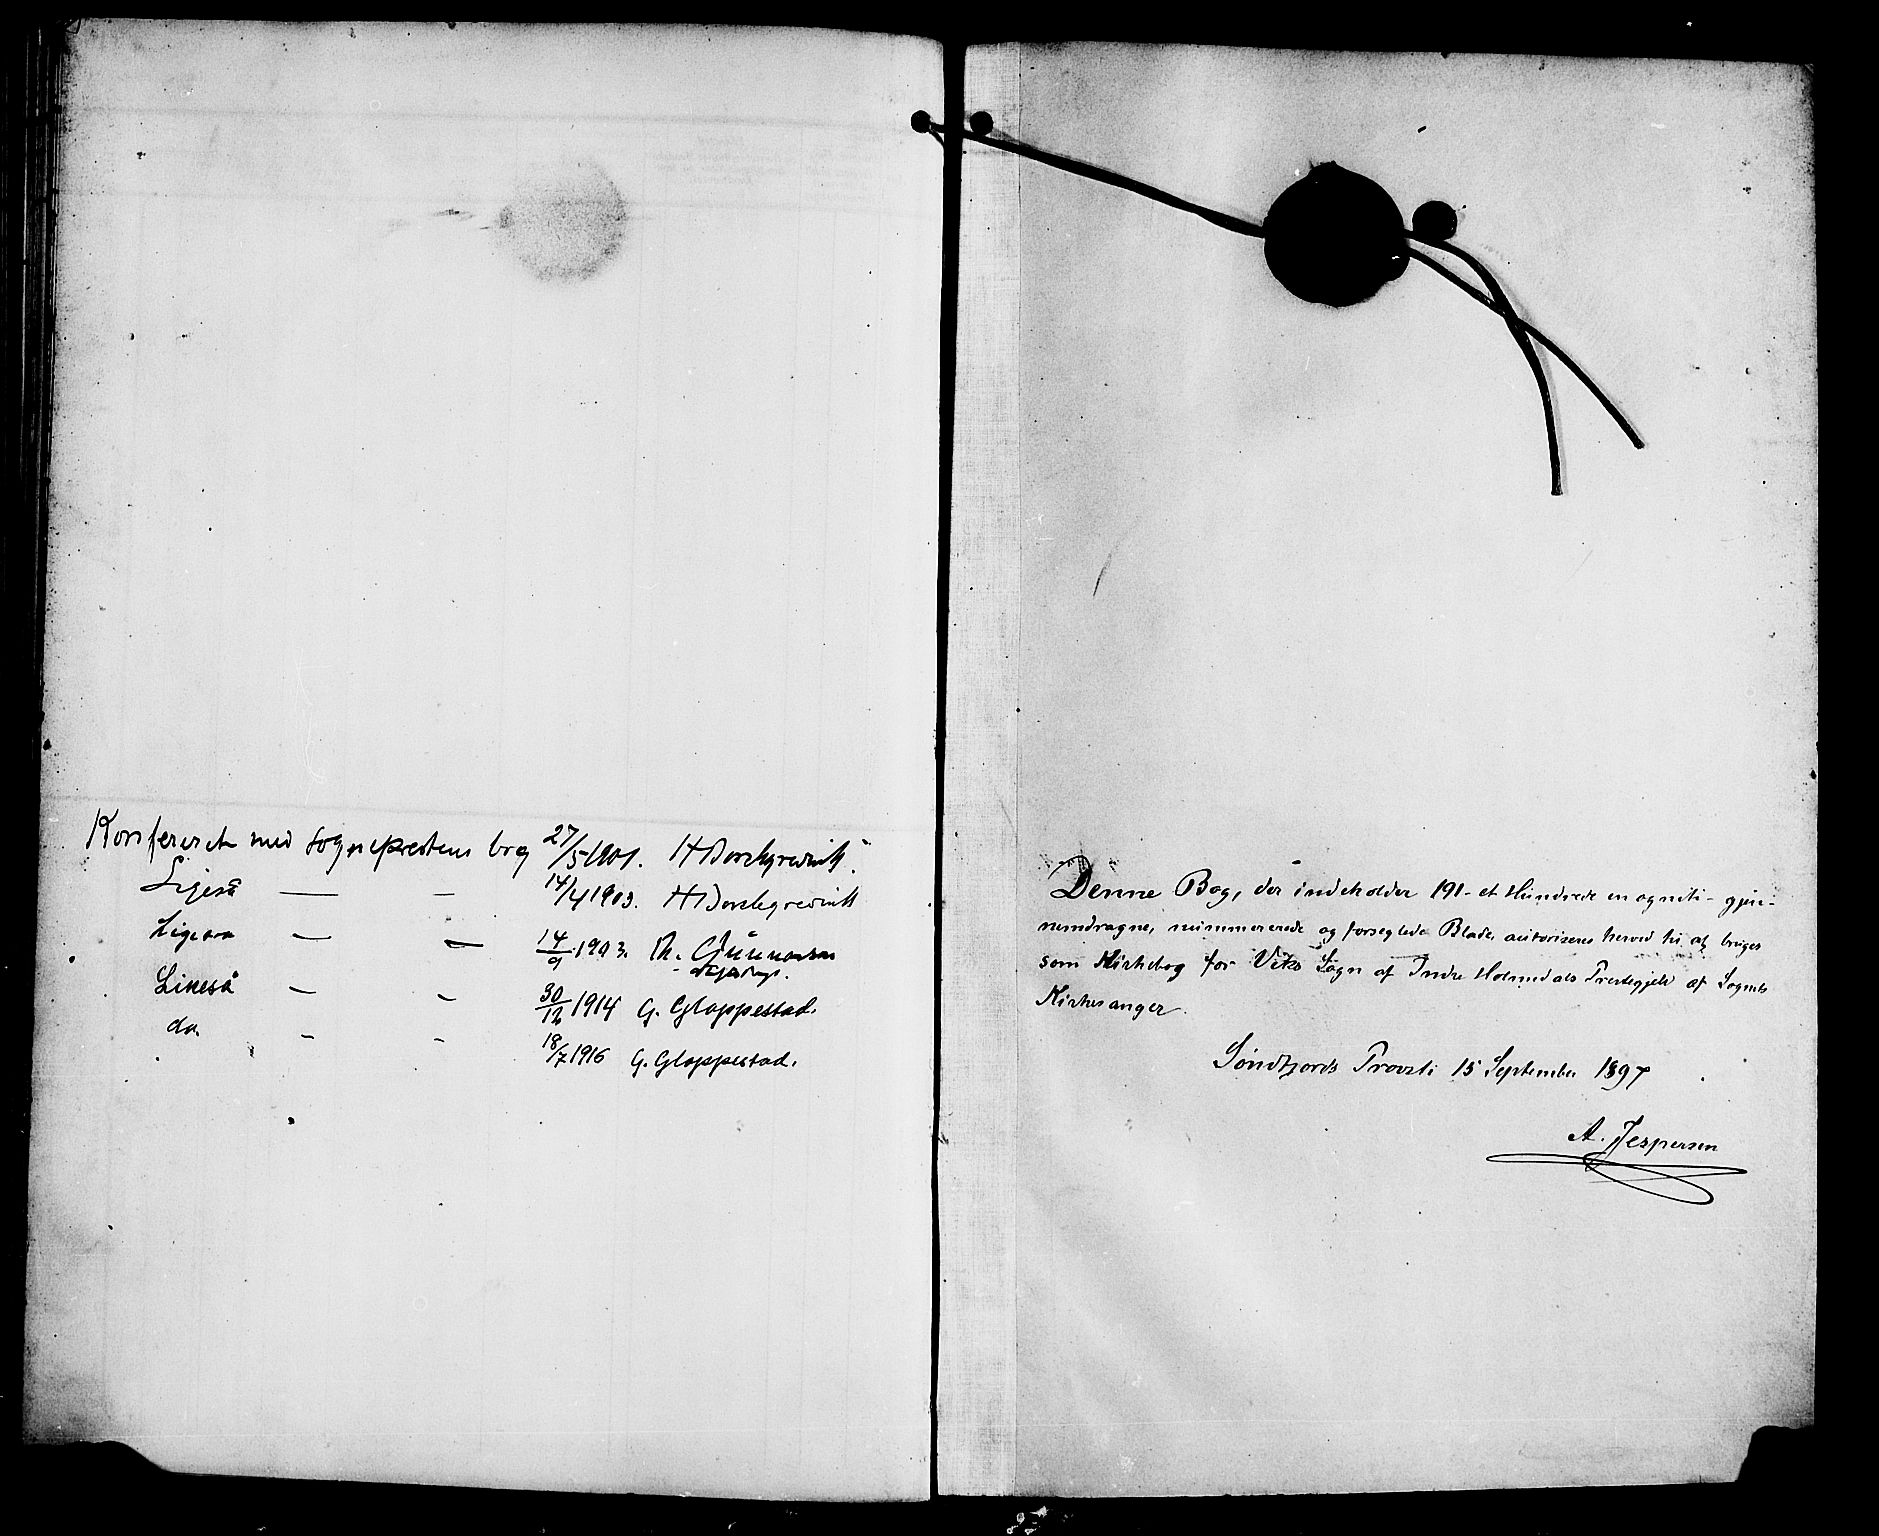 Konfereret med sogneprestens bog 27/5 1901. H Dorchgrevink.
Ligeså — — 14/4 1903. H Dorchgrevink
Ligesaa — — 14/9 1903. Th. Gunnarson
30/12 1914 G. Gloppestad.
Likeså - -
do. - - 18/7 1916 G. Gloppestad.
Denne Bog, der indeholder 191 - et Hundrede en og niti - gjen-
nemdragne, nummererede og forseglede Blade, autoriseres herved til at bruges
som Kirkebog for Viks Sogn af Indre Holmedals Prestegjeld af Sognets
Kirkesanger.
Søndfjords Provsti 15 September 1897
A. Jespersen